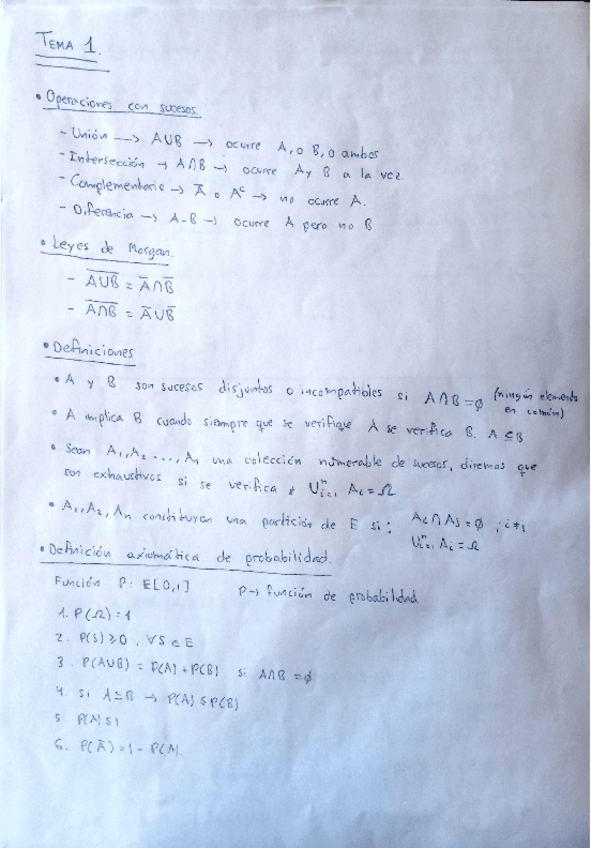 TEMA 1.
• Operaciones con sucesos.
- Unión --→ A∪B → ocurre A, o B, o ambos
- Intersección → A∩B → ocurre A y B a la vez
- Complementario → A̅ o Aᶜ → no ocurre A.
- Diferencia → A-B → ocurre A pero no B
• Leyes de Morgan.
- \overline{A∪B} = A̅∩B̅
- \overline{A∩B} = A̅∪B̅
• Definiciones
• A y B son sucesos disjuntos o incompatibles si A∩B=∅ (ningún elemento en común)
• A implica B cuando siempre que se verifique A se verifica B. A⊆B
• Sean A₁,A₂ ..., Aₙ una colección numerable de sucesos, diremos que
son exhaustivos si se verifica ⋃ⁿᵢ₌₁ Aᵢ = Ω
• A₁,A₂,Aₙ constituyen una partición de E si: Aᵢ∩Aⱼ=∅ ; i≠j
⋃ⁿᵢ₌₁ Aᵢ = Ω
• Definición axiomática de probabilidad.
Función P: E[0,1] P→ función de probabilidad
1. P(Ω)=1
2. P(S)≥0, ∀S∈E
3. P(A∪B) = P(A)+P(B) si A∩B=∅
4. Si A⊆B → P(A)≤P(B)
5 P(A)≤1
6. P(A̅)=1-P(A).